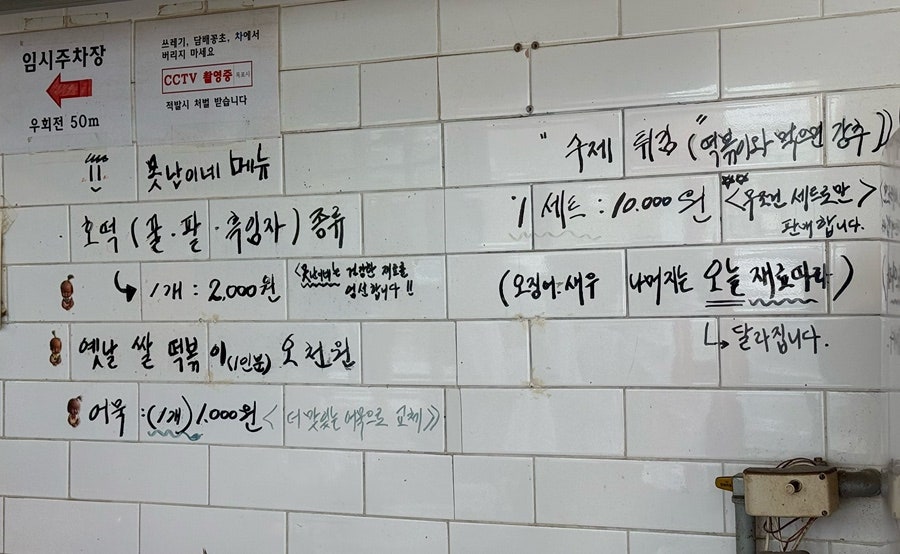 임시주차장
우회전 50m
쓰레기, 담배꽁초, 차에서
버리지 마세요
CCTV 촬영중
적발시 처벌 받습니다
못난이네 메뉴
호떡 (꿀·팥·흑임자) 종류
1개 : 2,000원
<못난이네는 건강한 재료를
엄선합니다!!
옛날 쌀 떡볶이(1인분) 오천원
어묵 :(1개) 1,000원 <더 맛있는 어묵으로 교체>>
" 수제 튀김 ("떡볶이와 먹으면 강추))
1세트 : 10.000원 <무조건 세트로만>
판매합니다.
(오징어·새우 나머지는 오늘 재료따라)
달라집니다.